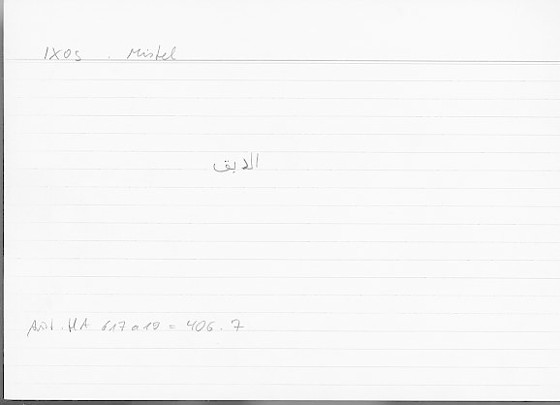 ιχος . Mistel
الدبق
Arist. HA 617a18 = 406.7